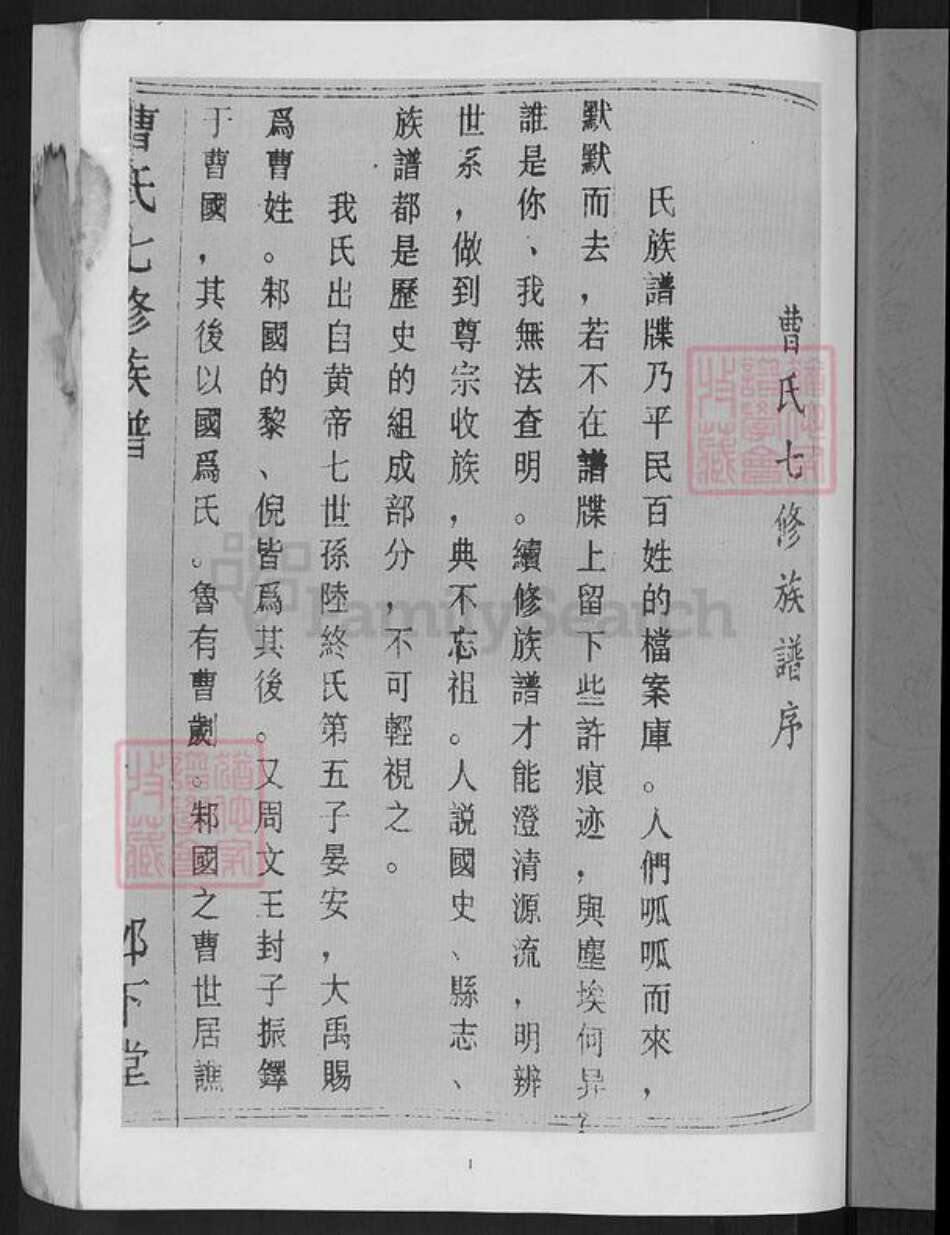 曹氏七修族譜序
氏族譜牒乃平民百姓的檔案庫。人們呱呱而來，
默默而去，若不在譜牒上留下些許痕迹，與塵埃何异？
誰是你、我無法查明。續修族譜才能澄清源流，明辨
世系，做到尊宗收族，典不忘祖。人説國史、縣志、
族譜都是歷史的組成部分，不可輕視之。
我氏出自黄帝七世孫陸終氏第五子晏安，大禹賜
爲曹姓。邾國的黎、倪皆爲其後。又周文王封子振鐸
于曹國，其後以國爲氏。魯有曹劌。邾國之曹世居譙
曹氏七修族譜
下堂
FamilySearch
1